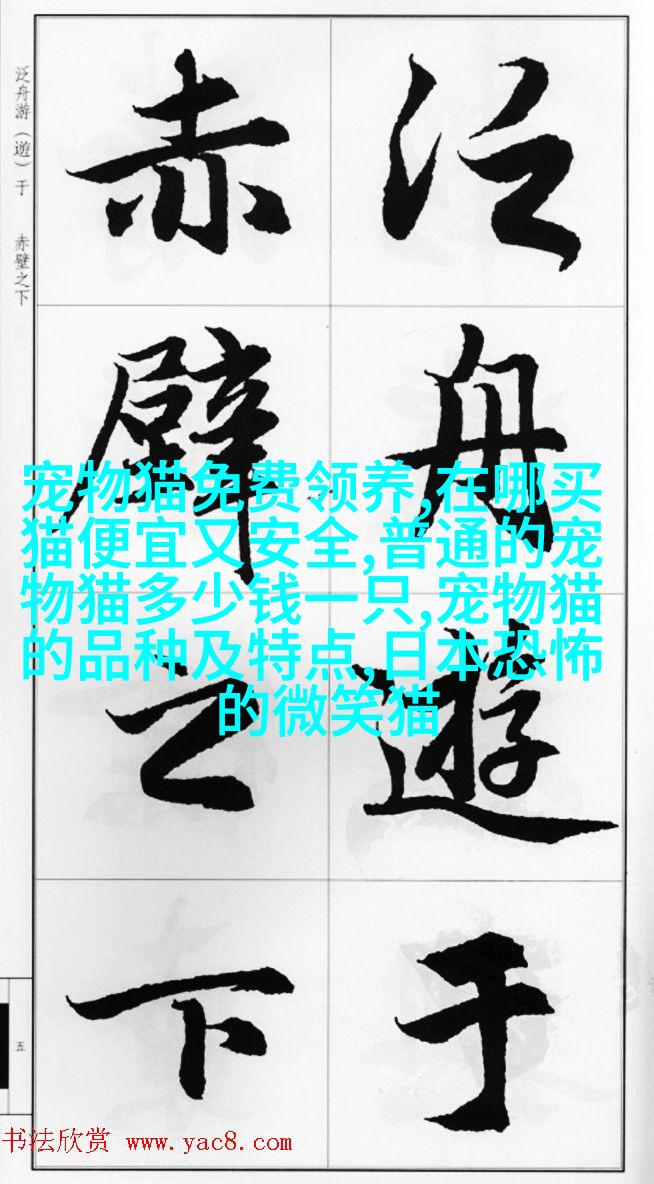 泛舟遊于
赤壁之下
泛舟游（遊）于　赤壁之下
宠物猫免费领养,在哪买
猫便宜又安全,普通的宠
物猫多少钱一只,宠物猫
的品种及特点,日本恐怖
的微笑猫
五
书法欣赏 www.yac8.com